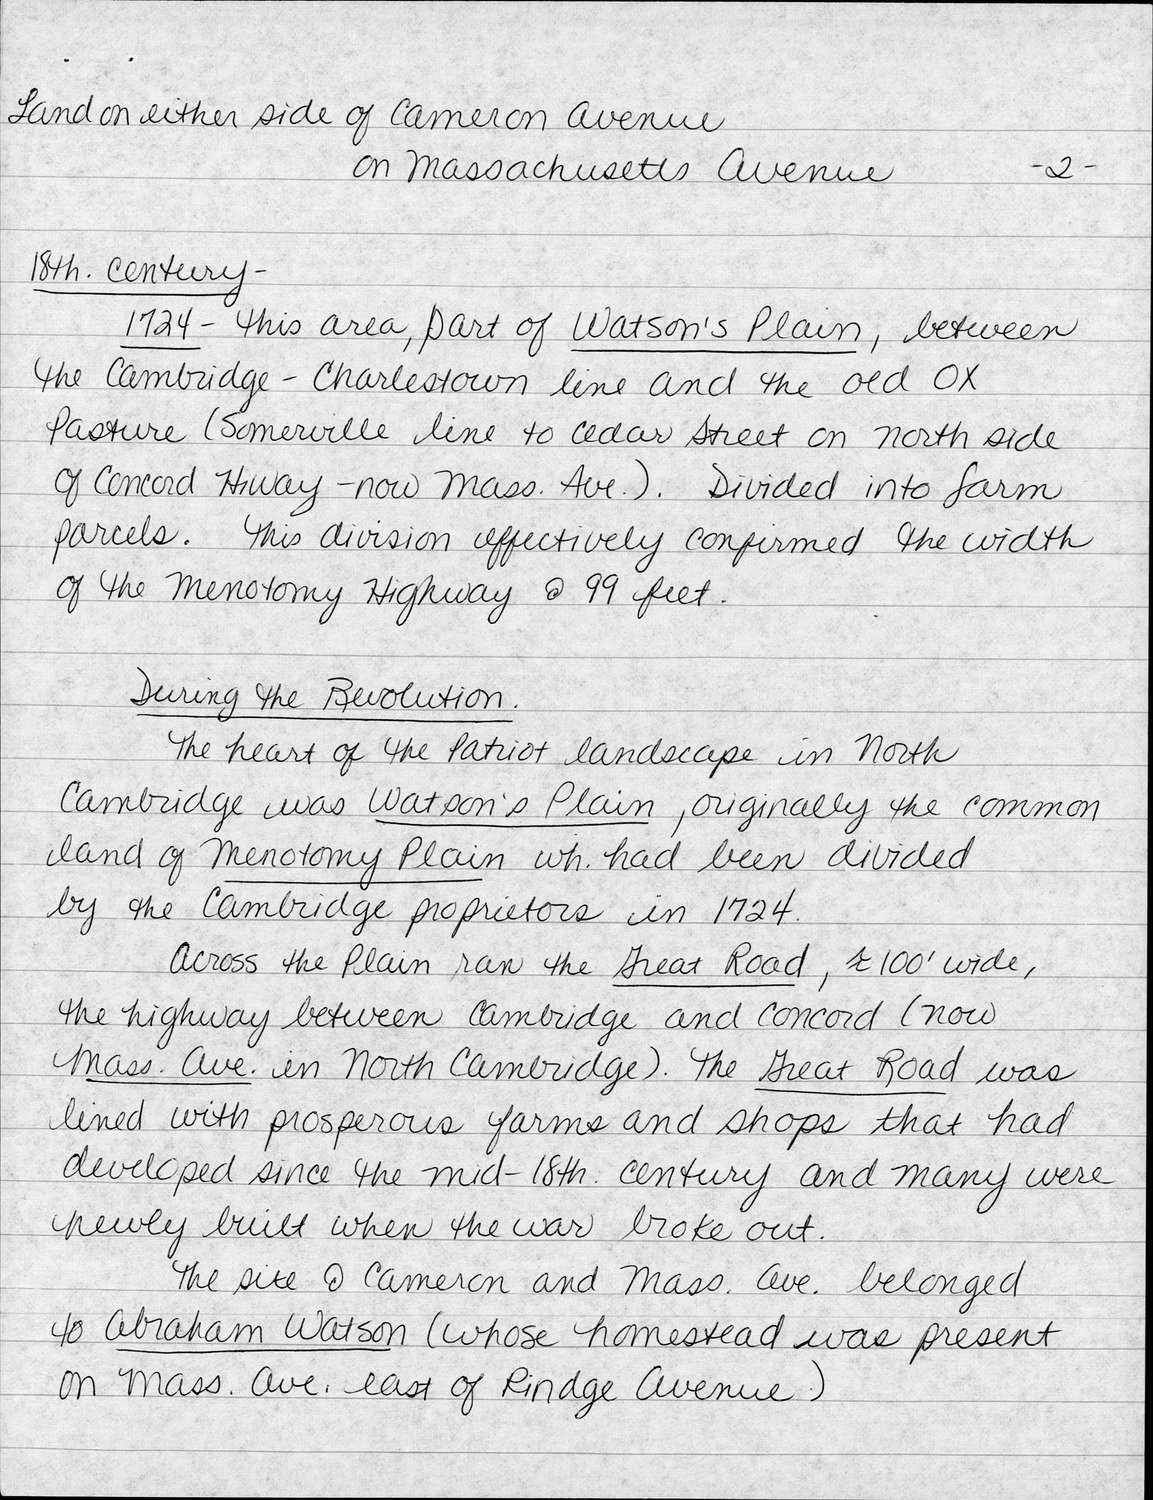 Land on either side of Cameron Avenue
on Massachusetts Avenue -2-
18th. Century-
1724 - this area, part of Watson's Plain, between
the Cambridge - Charlestown line and the old Ox
Pasture (Somerville line to Cedar Street on north side
of Concord Hiway - now Mass. Ave.). Divided into farm
parcels. This division effectively confirmed the width
of the Menotomy Highway @ 99 feet.
During the Revolution.
The heart of the Patriot landscape in North
Cambridge was Watson's Plain, originally the common
land of Menotomy Plain wh. had been divided
by the Cambridge proprietors in 1724.
Across the Plain ran the Great Road, ± 100' wide,
the highway between Cambridge and Concord (now
Mass. Ave. in North Cambridge). The Great Road was
lined with prosperous farms and shops that had
developed since the mid-18th. century and many were
newly built when the war broke out.
The site @ Cameron and Mass. Ave. belonged
to Abraham Watson (whose homestead was present
on Mass. Ave. east of Rindge Avenue.)